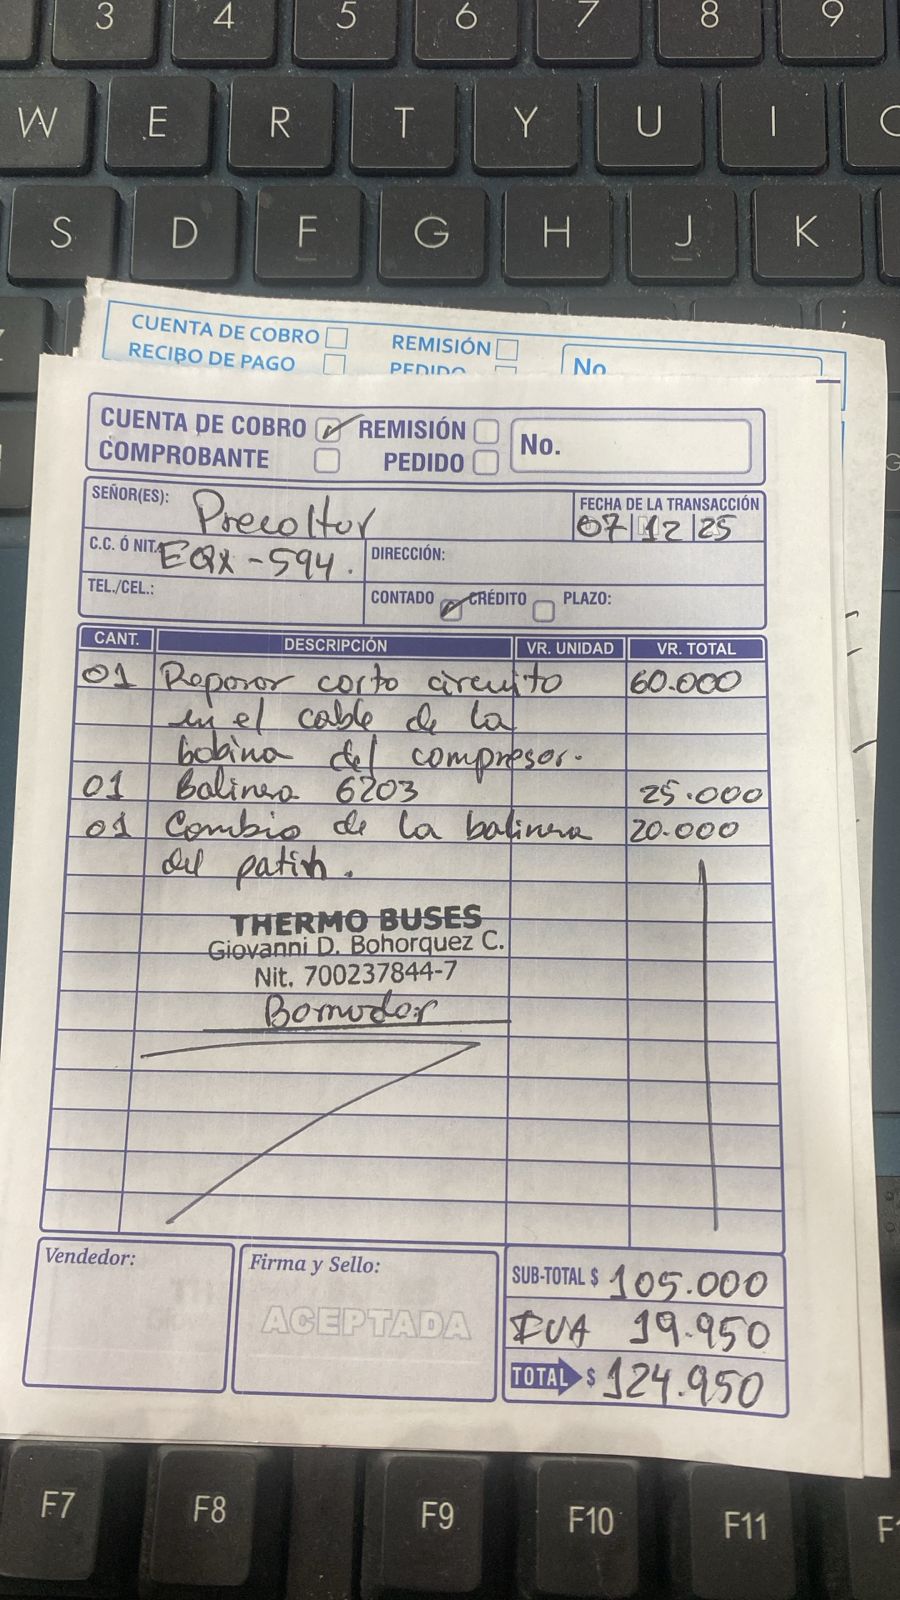 3 4 5 6 7 8 9
W E R T Y U I
S D F G H J K
CUENTA DE COBRO REMISIÓN
RECIBO DE PAGO PEDIDO No.
CUENTA DE COBRO REMISIÓN No.
COMPROBANTE PEDIDO
SEÑOR(ES): Precoltur FECHA DE LA TRANSACCIÓN
07|12|25
C.C. Ó NIT. EQX-594. DIRECCIÓN:
TEL./CEL.: CONTADO CRÉDITO PLAZO:
CANT. DESCRIPCIÓN VR. UNIDAD VR. TOTAL
01 Reparar corto circuito 60.000
en el cable de la
bobina del compresor.
01 Balinera 6203 25.000
01 Cambio de la balinera 20.000
del patin.
THERMO BUSES
Giovanni D. Bohorquez C.
Nit. 700237844-7
Vendedor: Firma y Sello: SUB-TOTAL $ 105.000
ACEPTADA IVA 19.950
TOTAL $ 124.950
F7 F8 F9 F10 F11